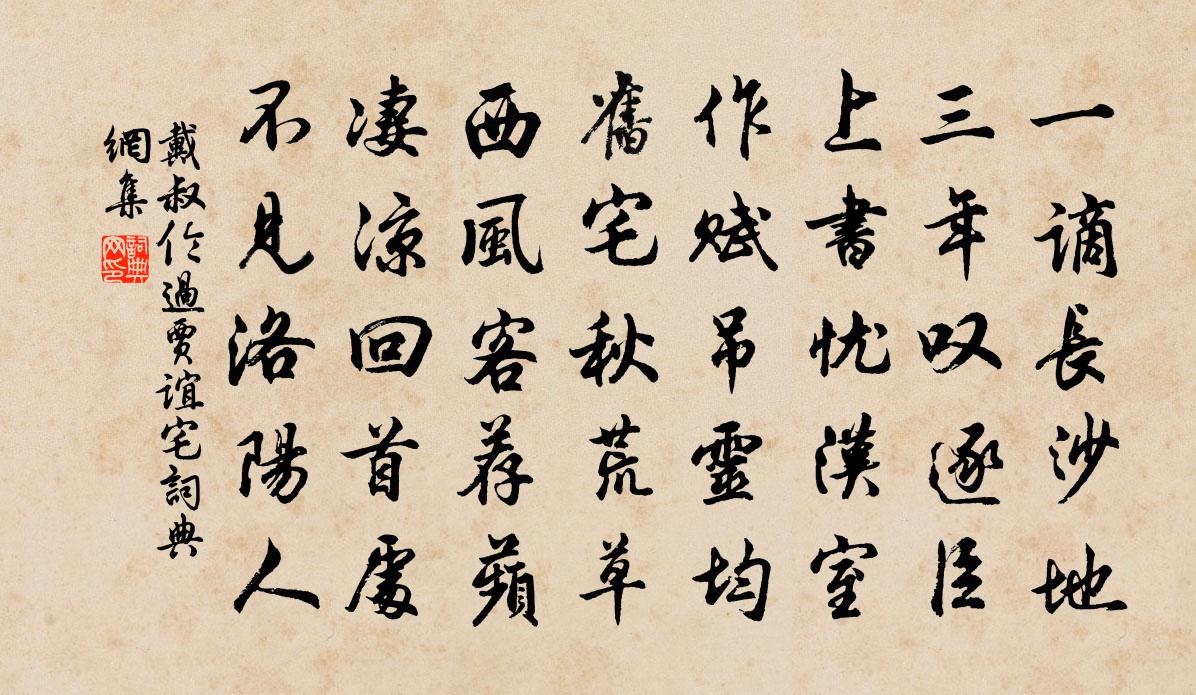 一謫長沙地
三年叹逐臣
上書忧漢室
作赋吊靈均
舊宅秋荒草
西風客荐蘋
凄凉回首處
不見洛陽人
戴叔伦過賈誼宅詞典
網集
詞典网印